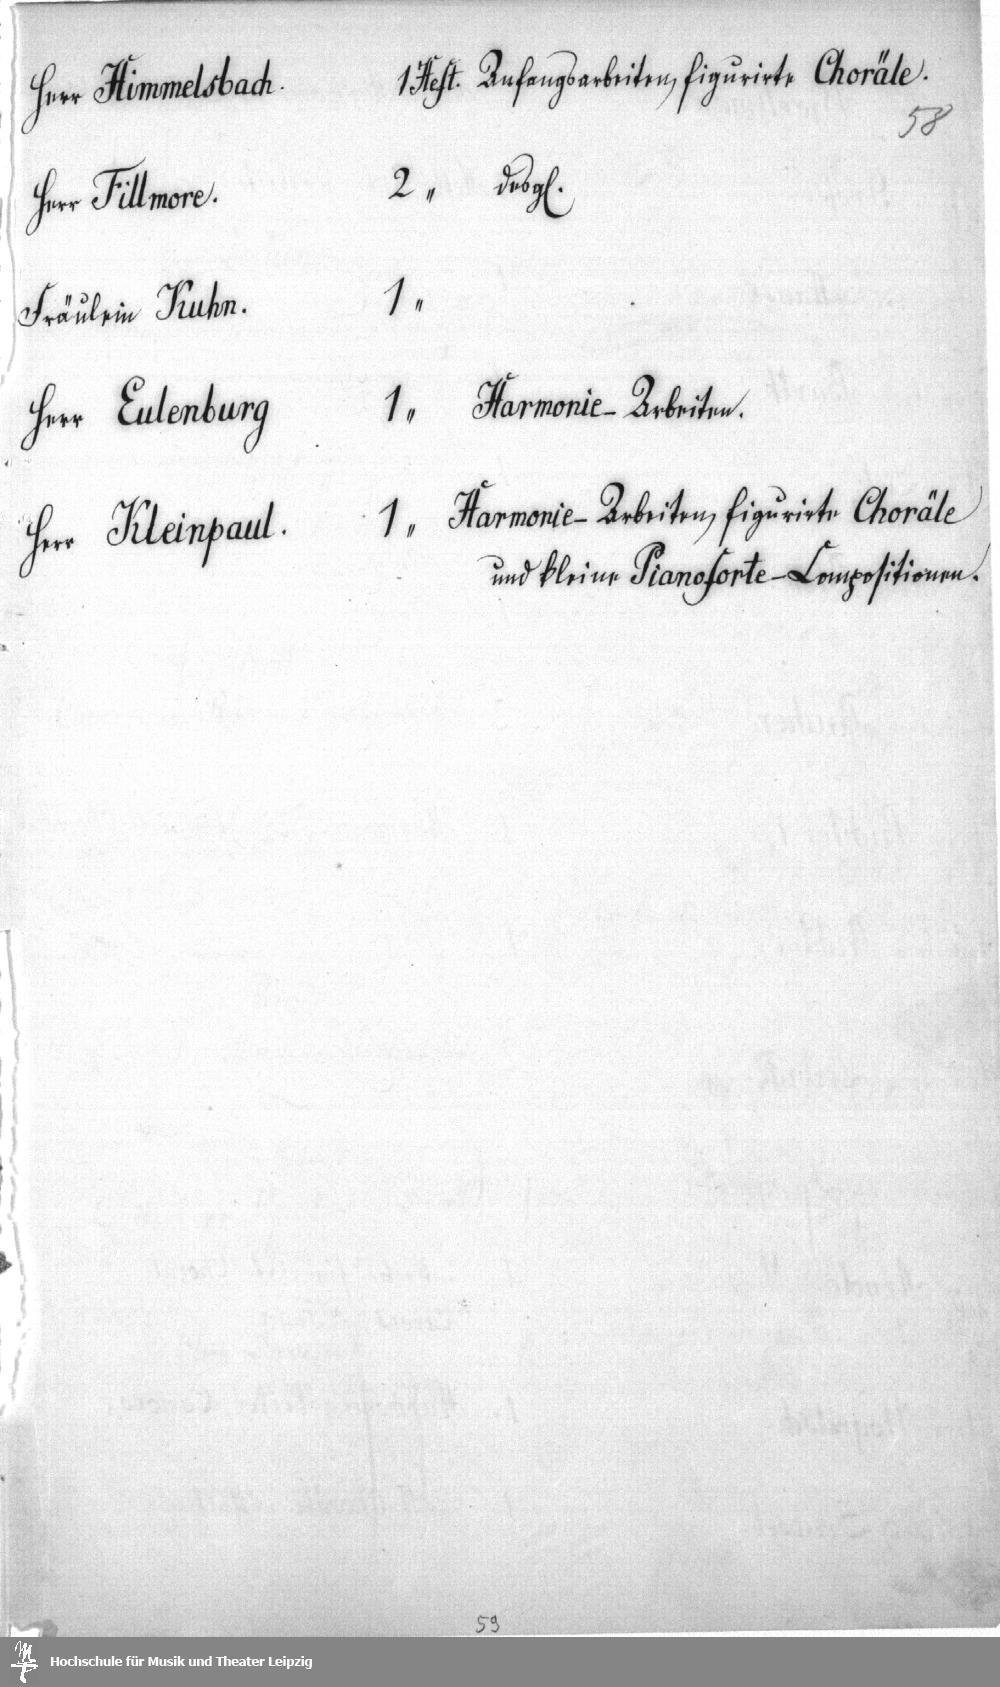 Herr Himmelsbach. 1 Heft. Anfangsarbeiten, figurirte Choräle.
58
Herr Fillmore. 2 „ desgl.
Fräulein Kuhn. 1 „
Herr Eulenburg 1 „ Harmonie-Arbeiten.
Herr Kleinpaul. 1 „ Harmonie-Arbeiten, figurirte Choräle
und kleine Pianoforte-Compositionen.
59
Hochschule für Musik und Theater Leipzig